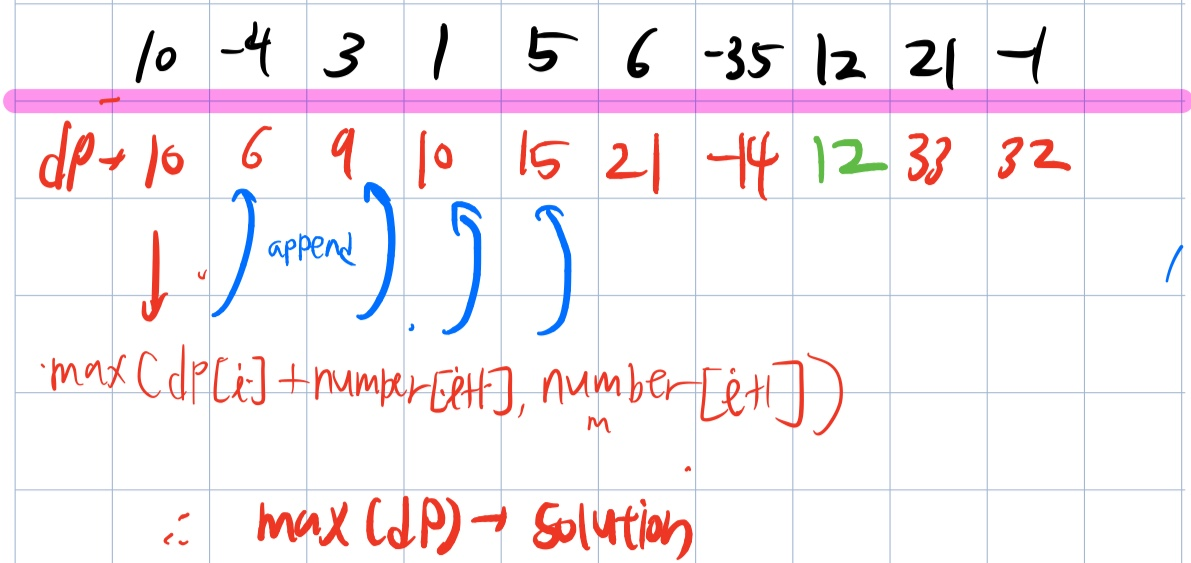 10 -4 3 1 5 6 -35 12 21 -1
dp→ 10 6 9 10 15 21 -14 12 33 32
append
max(dp[i]+number[i+1], number[i+1])
m
∴ max(dp)→ solution